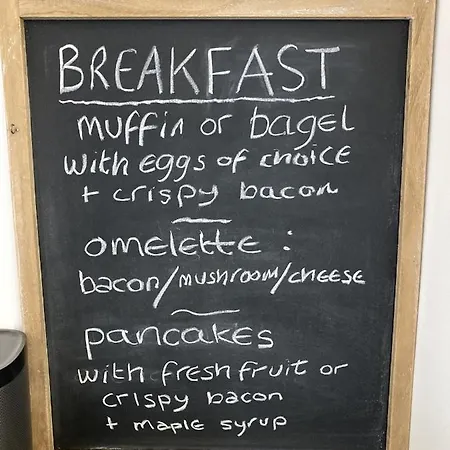 BREAKFAST
muffin or bagel
with eggs of choice
+ crispy bacon
omelette :
bacon/mushroom/cheese
pancakes
with fresh fruit or
crispy bacon
+ maple syrup